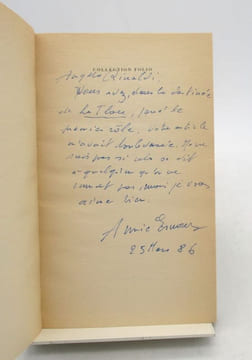 COLLECTION FOLIO
Angelo Rinaldi,
Vous avez, dans la destinée
de La Place, joué le
premier rôle, votre article
m'avait bouleversée. Je ne
sais pas si cela se dit
à quelqu'un qu'on ne
connaît pas, moi je vous
aime bien.
Annie Ernaux
25 Mars 86